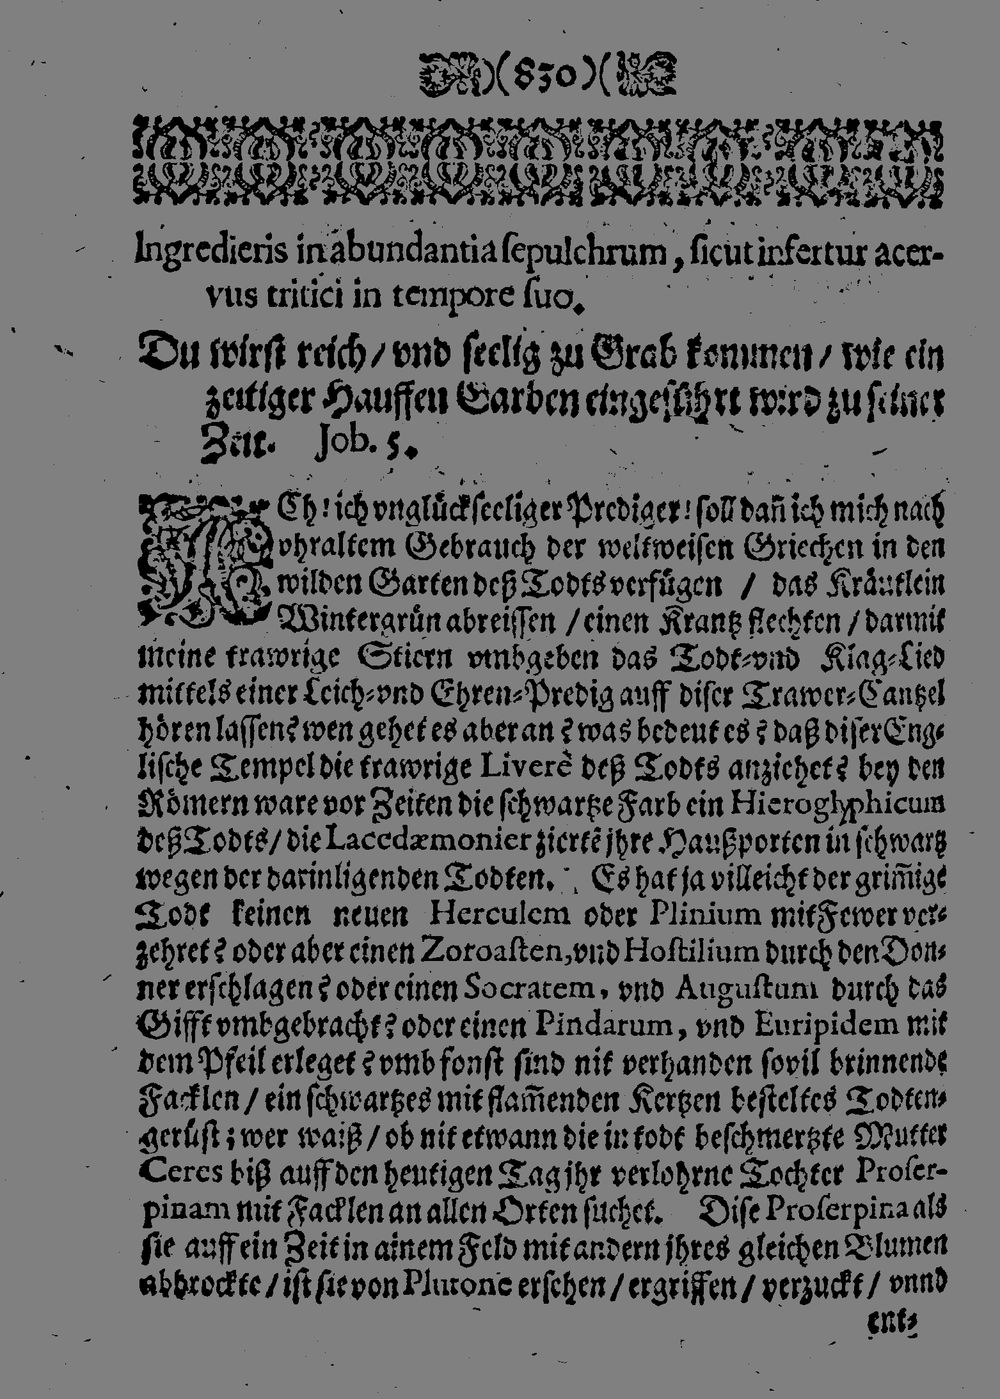 )(830)(
Ingredieris in abundantia sepulchrum, sicut infertur acer-
vus tritici in tempore suo.
Du wirst reich/ vnd seelig zu Grab kommen/ wie ein
zeitiger Hauffen Garben eingeführt wird zu seiner
Zeit. Job. 5.
ACh! ich vnglückseeliger Prediger! soll dañ ich mich nach
vhraltem Gebrauch der weltweisen Griechen in den
wilden Garten deß Todts verfügen / das Kräutlein
Wintergrün abreissen / einen Krantz flechten / darmit
meine trawrige Stiern vmbgeben das Todt-vnd Klag-Lied
mittels einer Leich-vnd Ehren-Predig auff diser Trawer-Cantzel
hören lassen? wen gehet es aber an? was bedeut es? daß diser Eng-
lische Tempel die trawrige Liverè deß Todts anziehet? bey den
Römern ware vor Zeiten die schwartze Farb ein Hieroglyphicum
deß Todts/ die Lacedæmonier ziertẽ jhre Haußporten in schwartz
wegen der darinligenden Todten. Es hat ja villeicht der grim̃ige
Todt keinen neuen Herculem oder Plinium mit Fewer ver-
zehret? oder aber einen Zoroasten, vnd Hostilium durch den Don-
ner erschlagen? oder einen Socratem, vnd Augustum durch das
Gifft vmbgebracht? oder einen Pindarum, vnd Euripidem mit
dem Pfeil erleget? vmb sonst sind nit verhanden sovil brinnende
Facklen/ ein schwartzes mit flam̃enden Kertzen besteltes Todten-
gerüst; wer waiß/ ob nit etwann die in todt beschmertzte Mutter
Ceres biß auff den heutigen Tag jhr verlohrne Tochter Proser-
pinam mit Facklen an allen Orten suchet. Dise Proserpina als
sie auff ein Zeit in ainem Feld mit andern jhres gleichen Blumen
abbrockte/ ist sie von Plutone ersehen/ ergriffen/ verzuckt/ vnnd
ent-